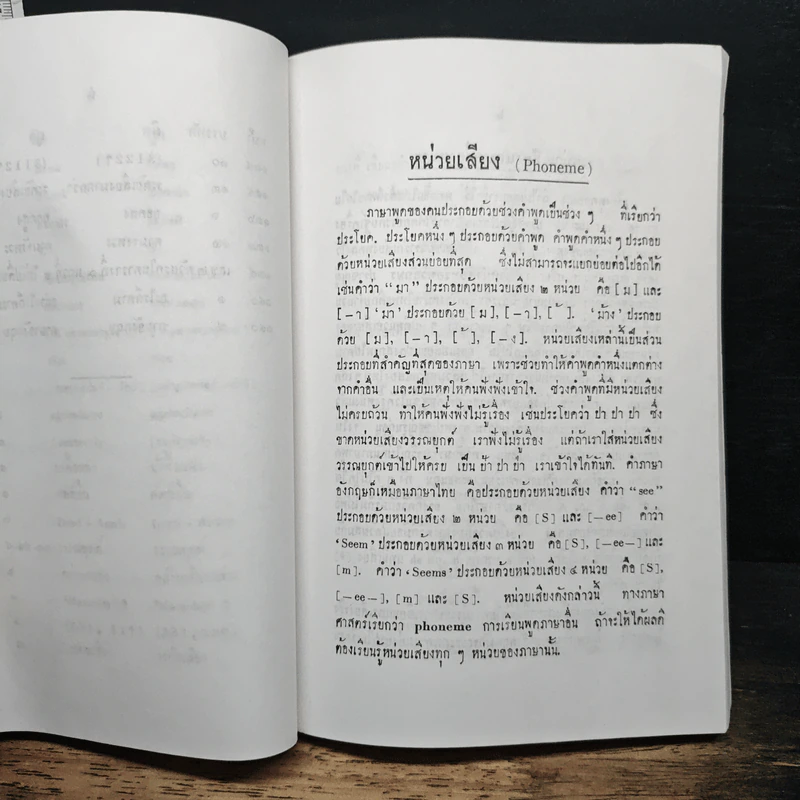 หน่วยเสียง (Phoneme)
ภาษาพูดของคนประกอบด้วยช่วงคำพูดเป็นช่วง ๆ ที่เรียกว่า
ประโยค. ประโยคหนึ่ง ๆ ประกอบด้วยคำพูด คำพูดคำหนึ่ง ๆ ประกอบ
ด้วยหน่วยเสียงส่วนย่อยที่สุด ซึ่งไม่สามารถจะแยกย่อยต่อไปอีกได้
เช่นคำว่า “ มา” ประกอบด้วยหน่วยเสียง ๒ หน่วย คือ [ ม ] และ
[ –า ] ‘ม้า’ ประกอบด้วย [ ม ], [ –า ], [ ้ ]. ‘ม้าง’ ประกอบ
ด้วย [ ม ], [ –า ], [ ้ ], [ –ง ]. หน่วยเสียงเหล่านี้เป็นส่วน
ประกอบที่สำคัญที่สุดของภาษา เพราะช่วยทำให้คำพูดคำหนึ่งแตกต่าง
จากคำอื่น และเป็นเหตุให้คนฟังฟังเข้าใจ. ช่วงคำพูดที่มีหน่วยเสียง
ไม่ครบถ้วน ทำให้คนฟังฟังไม่รู้เรื่อง เช่นประโยคว่า ปา ปา ปา ซึ่ง
ขาดหน่วยเสียงวรรณยุกต์ เราฟังไม่รู้เรื่อง แต่ถ้าเราใส่หน่วยเสียง
วรรณยุกต์เข้าไปให้ครบ เป็น ป้า ปา ป่า เราเข้าใจได้ทันที. คำภาษา
อังกฤษก็เหมือนภาษาไทย คือประกอบด้วยหน่วยเสียง คำว่า “see”
ประกอบด้วยหน่วยเสียง ๒ หน่วย คือ [S] และ [—ee] คำว่า
‘Seem’ ประกอบด้วยหน่วยเสียง ๓ หน่วย คือ [S], [—ee—] และ
[m]. คำว่า ‘Seems’ ประกอบด้วยหน่วยเสียง ๔ หน่วย คือ [S],
[—ee—], [m] และ [S]. หน่วยเสียงดังกล่าวนี้ ทางภาษา
ศาสตร์เรียกว่า phoneme การเรียนพูดภาษาอื่น ถ้าจะให้ได้ผลดี
ต้องเรียนรู้หน่วยเสียงทุก ๆ หน่วยของภาษานั้น.